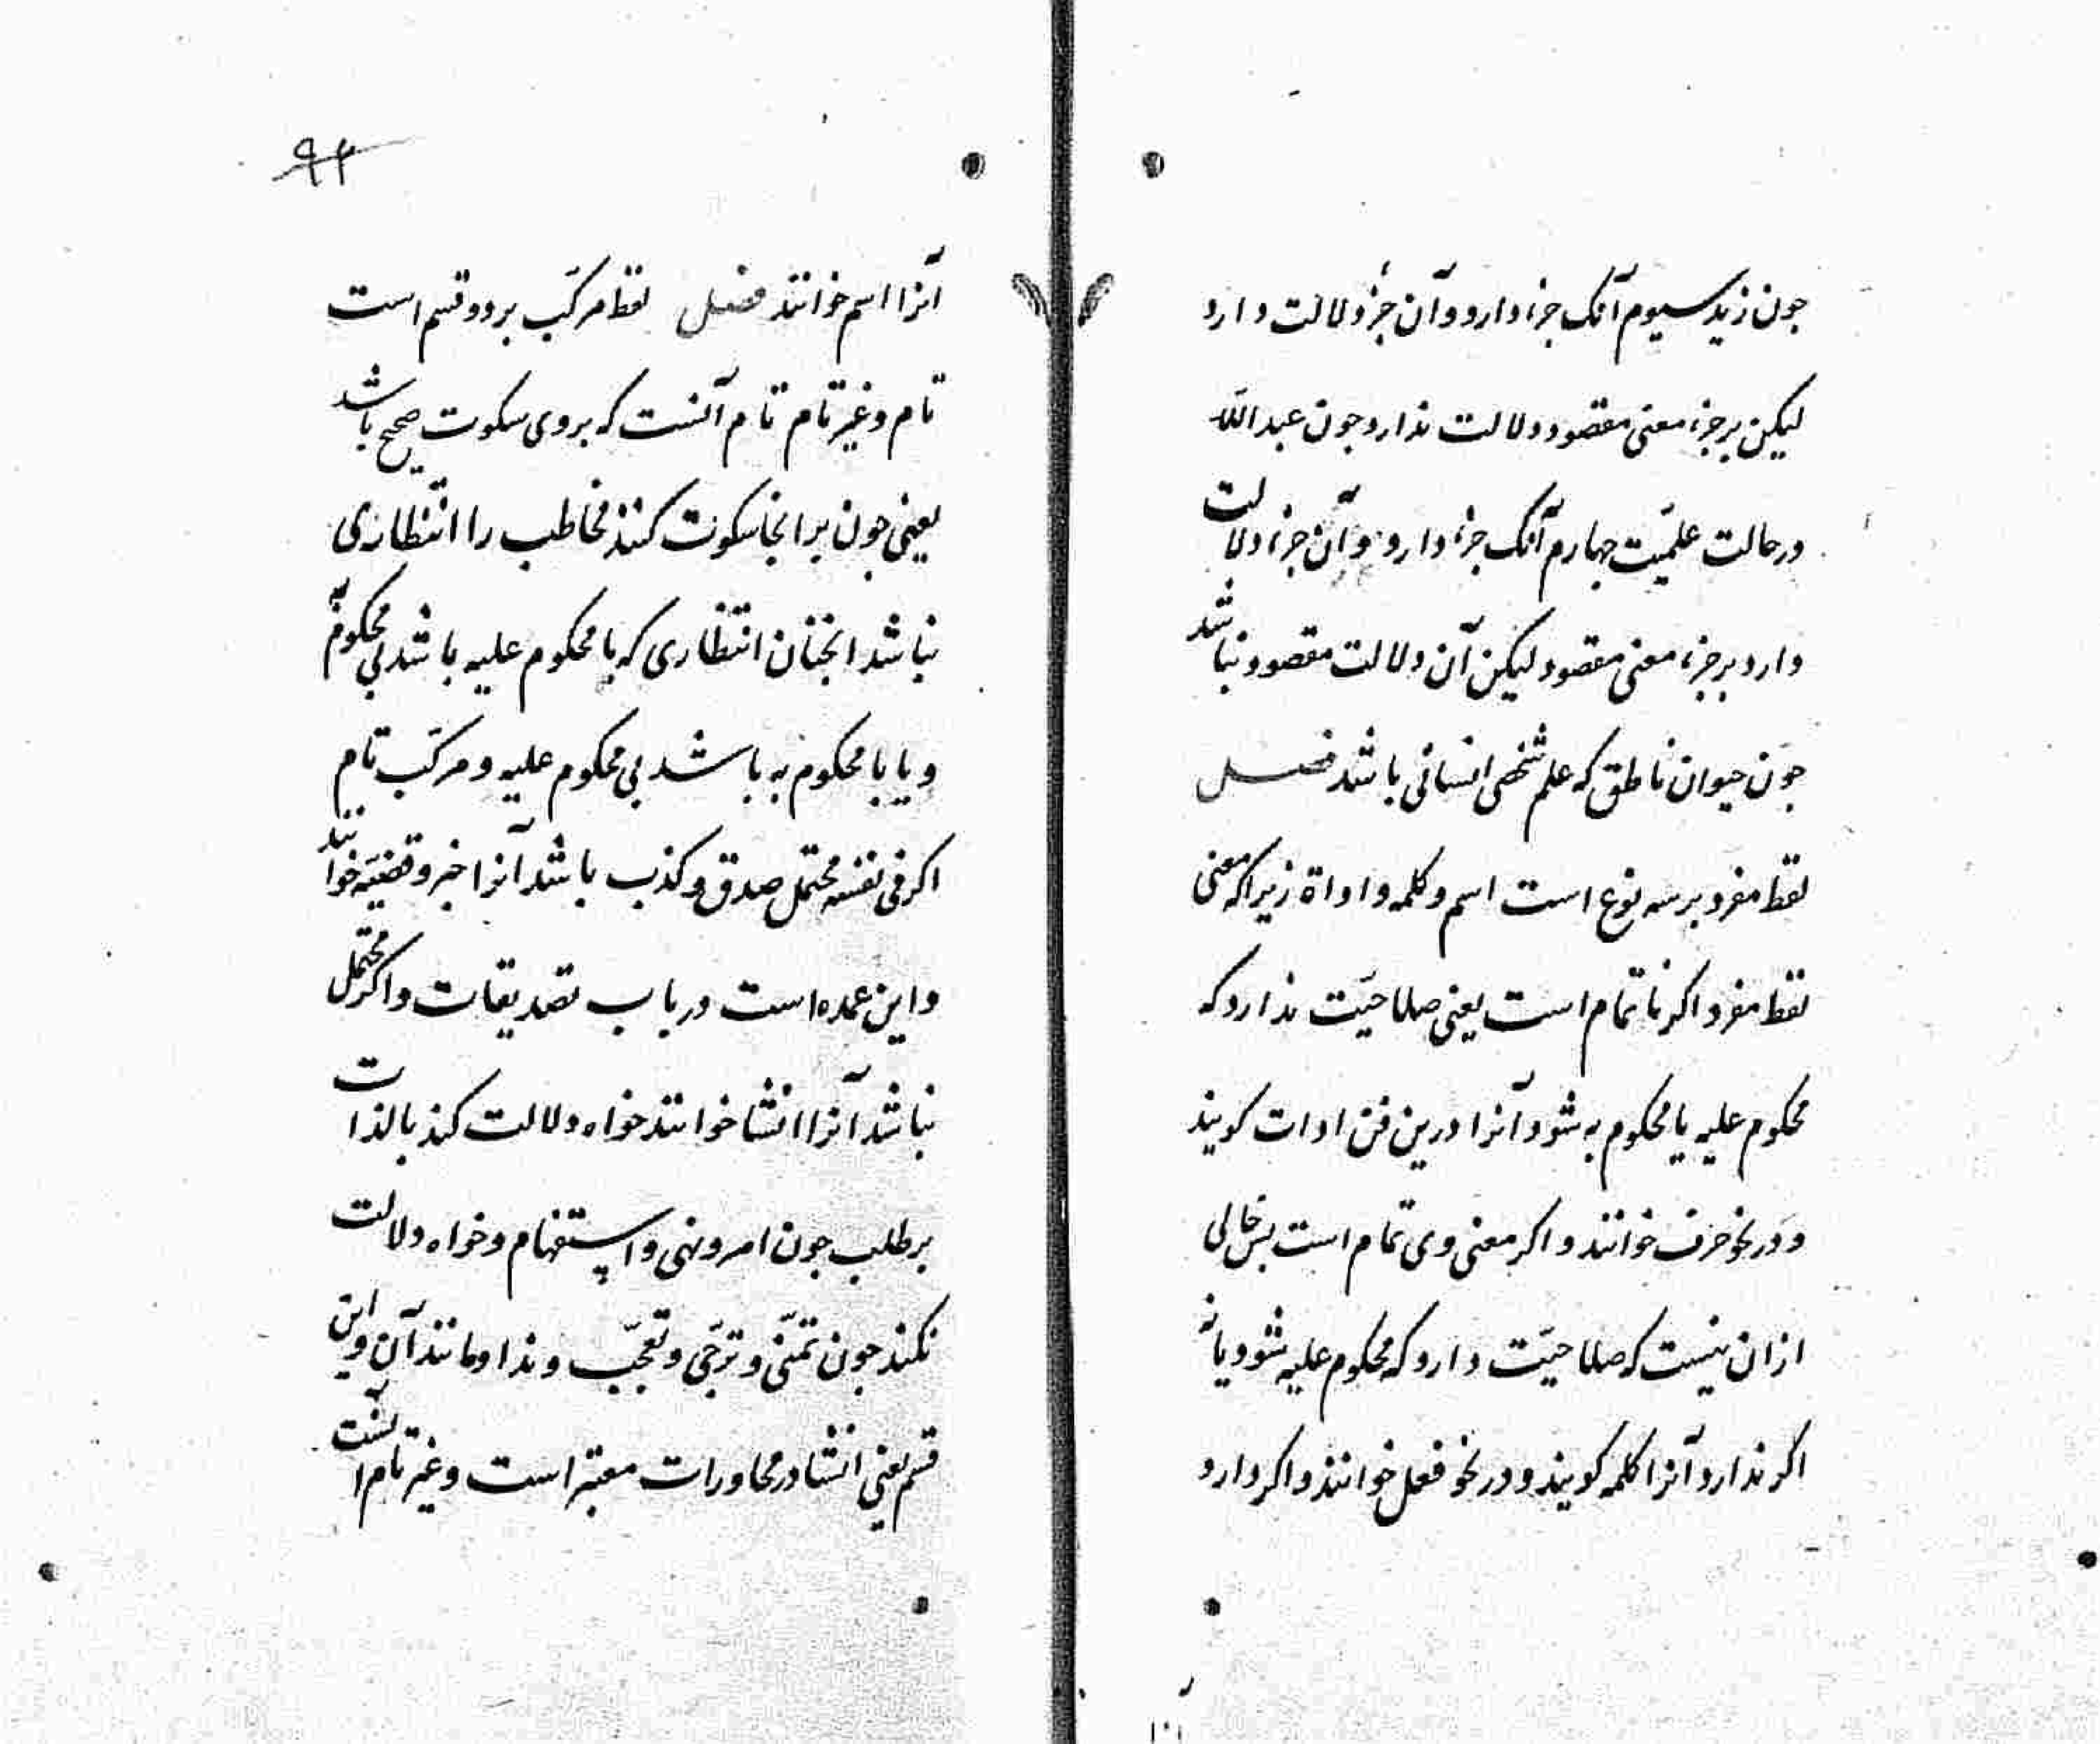 جون زید سیوم آنک جزء دارد و آن جزء دلالت دارد
لیکن بر جزء معنی مقصود دلالت ندارد جون عبد الله
در حالت علمیّت جهارم آنک جزء دارد و آن جزء دلالت
دارد بر جزء معنی مقصود لیکن آن دلالت مقصود نباشد
جون حیوان ناطق که علم شخصی انسانی باشد فصل
لفظ مفرد بر سه نوع است اسم و کلمه و اداة زیرا که معنی
لفظ مفرد اکر ناتمام است یعنی صلاحیّت ندارد که
محکوم علیه یا محکوم به شود آنرا درین فن ادات کویند
و در نحو حرف خوانند و اکر معنی وی تمام است بس خالی
ازان نیست که صلاحیّت دارد که محکوم علیه شود یا نه
اکر ندارد آنرا کلمه کویند و در نحو فعل خوانند و اکر دارد
۹۲
آنرا اسم خوانند فصل لفظ مرکّب بر دو قسم است
تام و غیر تام تام آنست که بر وی سکوت صحیح باشد
یعنی جون بر انجا سکوت کنند مخاطب را انتظاری
نباشد انجنان انتظاری که با محکوم علیه باشد بی محکوم به
و یا با محکوم به باشد بی محکوم علیه و مرکّب تام
اکر فی نفسه محتمل صدق و کذب باشد آنرا خبر و قضیّه خوانند
و این عمده است در باب تصدیقات و اکر محتمل
نباشد آنرا انشا خوانند خواه دلالت کند بالذات
بر طلب جون امر و نهی و استفهام و خواه دلالت
نکند جون تمنّی و ترجّی و تعجّب و ندا و مانند آن و این
قسم یعنی انشا در محاورات معتبر است و غیر تام آنست